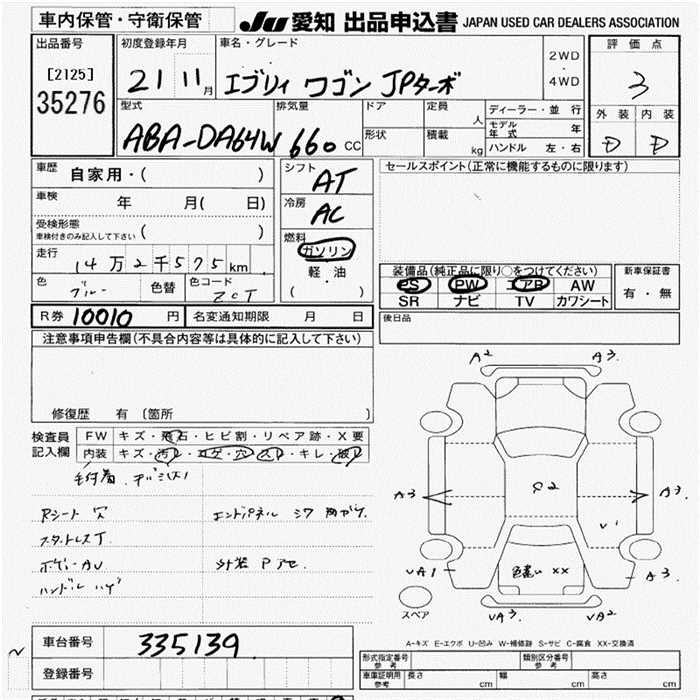 車内保管・守衛保管
JU 愛知 出品申込書 JAPAN USED CAR DEALERS ASSOCIATION
出品番号
[2125]
35276
初度登録年月
21 11月
車名・グレード
エブリィ ワゴン JPターボ
2WD
・
4WD
評価点
3
外装 内装
D D
型式
ABA-DA64W
排気量
660 CC
ドア
形状
定員 人
積載 kg
ディーラー・並行
モデル年式 年
ハンドル 左・右
車歴 自家用・( )
車検 年 月( 日)
受検形態
車検付きのみ記入して下さい ( )
走行 14万2千575km
色 ブルー 色替 色コード ZCT
シフト AT
冷房 AC
燃料
ガソリン
軽・油
( )
セールスポイント(正常に機能するものに限ります)
装備品(純正品に限り○をつけてください)
PS PW エアB AW
SR ナビ TV カワシート
新車保証書
有・無
後日品
R券 10010 円 名変通知期限 月 日
注意事項申告欄(不具合内容等は具体的に記入して下さい)
修復歴 有 〔箇所 〕
検査員記入欄
FW キズ・飛石・ヒビ割・リペア跡・X要
内装 キズ・汚レ・コゲ・穴・スレ・キレ・破レ
毛付着
Rシート 穴
エンドパネル シワ
スタットレスT
ボデーAU
外装 P アセ
ハンドル ハゲ
A2 A3
A3 P2 A3
U1
UA1 色違い XX A3
スペア
UA3 UA2
A-キズ E-エクボ U-凹み W-補修跡 S-サビ C-腐食 XX-交換済
車台番号 335139
登録番号
形式指定番号
参考
類別区分番号
参考
車庫証明用
参考
長さ cm 幅 cm 高さ cm